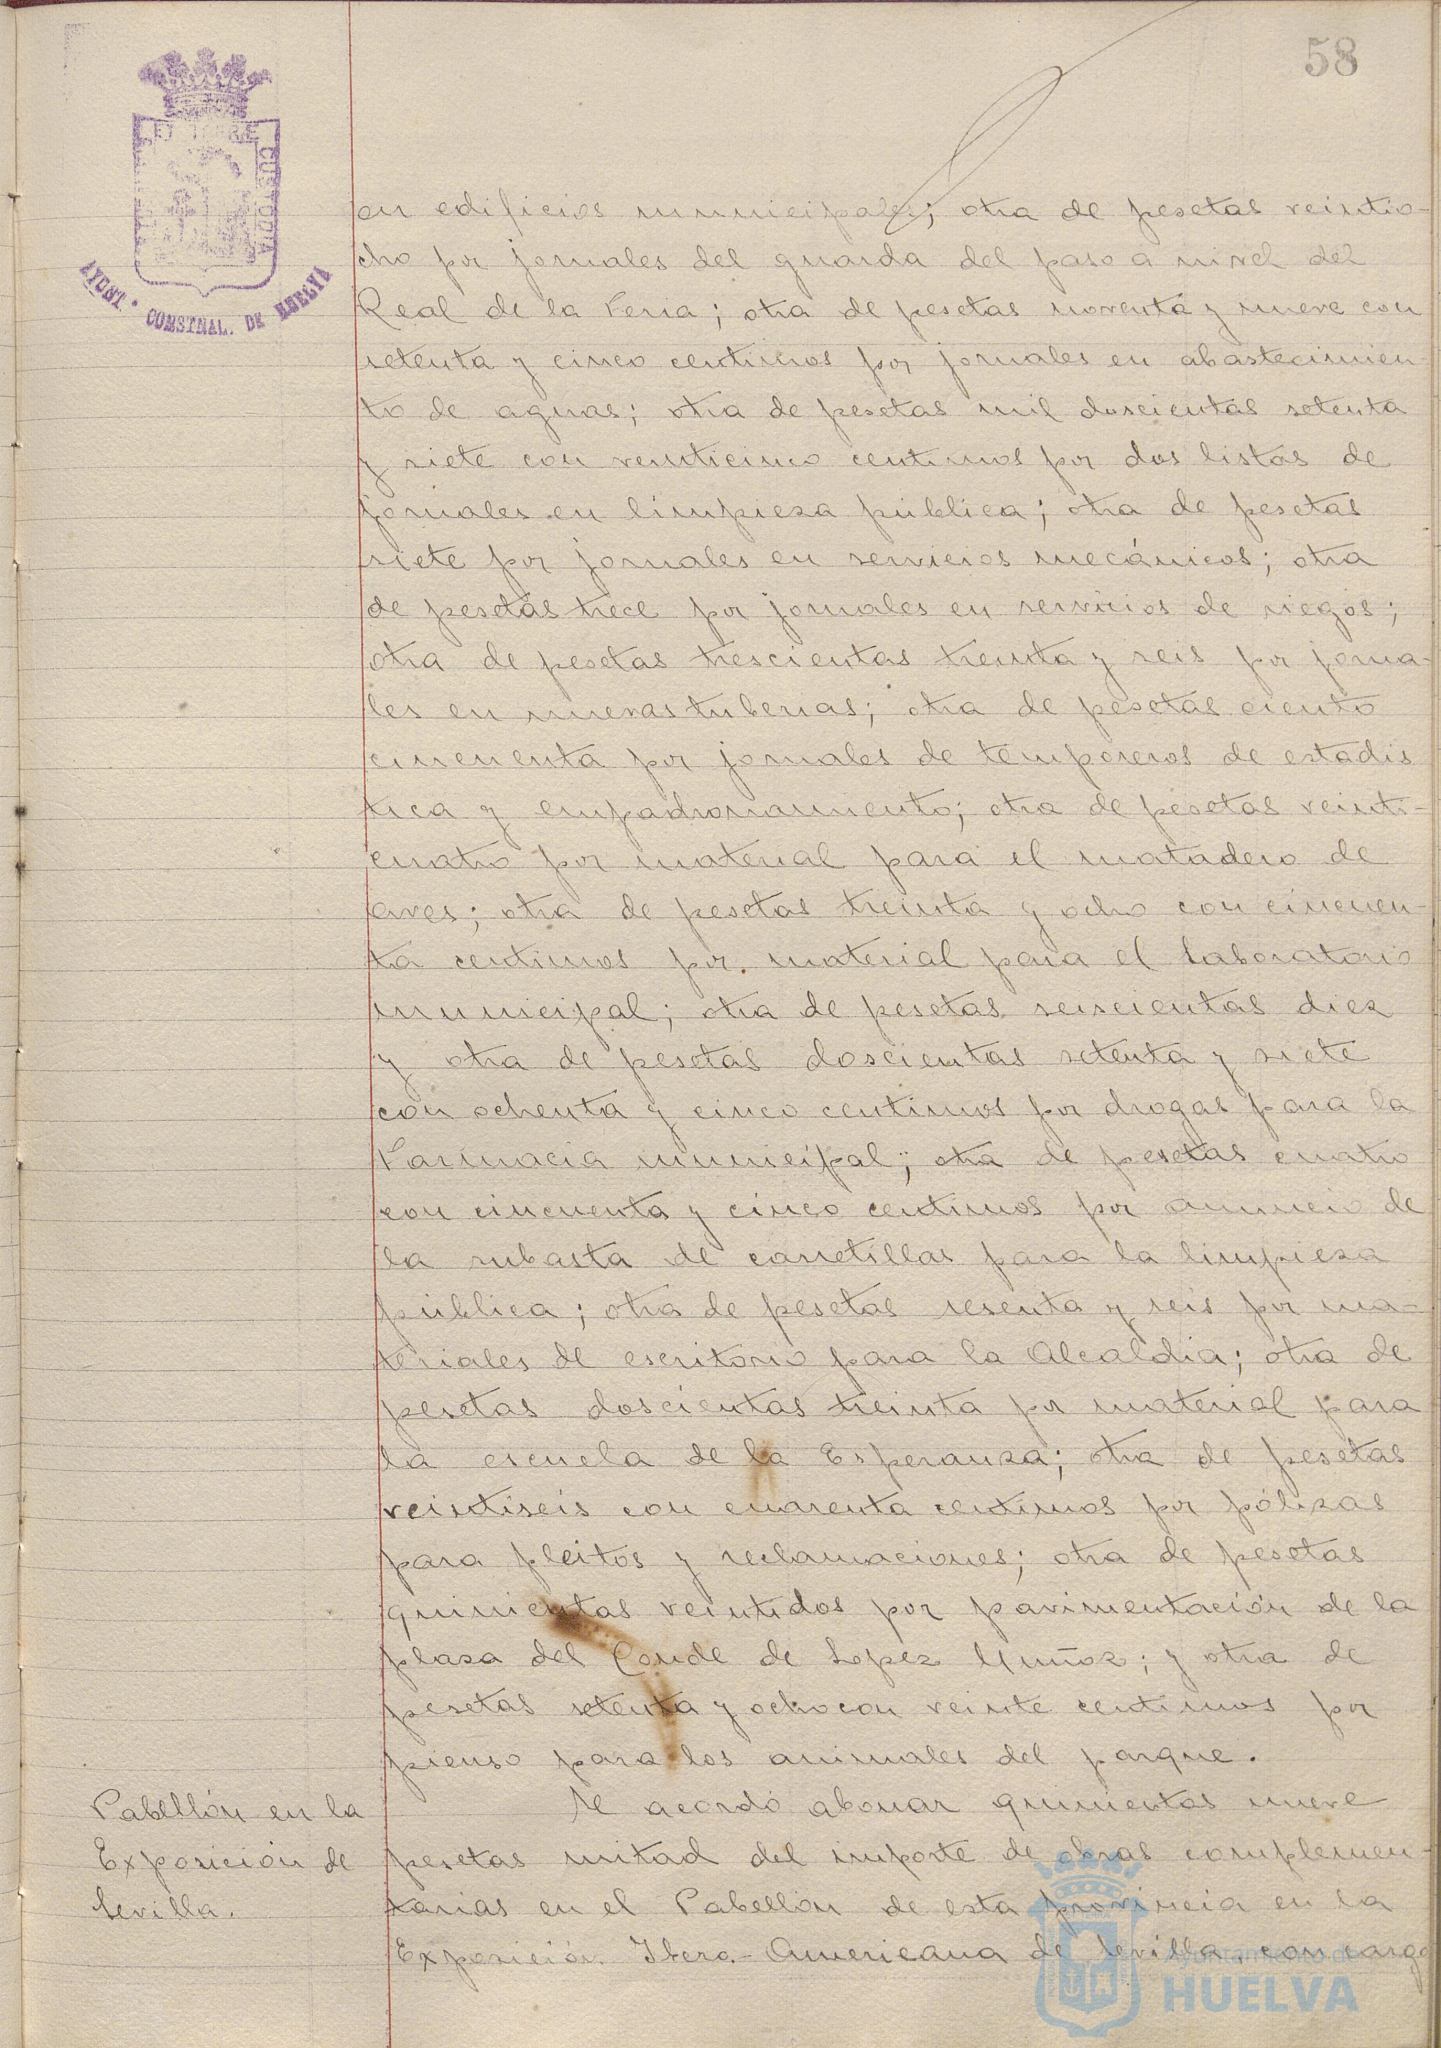 58
AYUNT. CONSTNAL. DE HUELVA
en edificios municipales; otra de pesetas veintio-
cho por jornales del guarda del paso a nivel del
Real de la Feria; otra de pesetas noventa y nueve con
setenta y cinco centimos por jornales en abastecimien-
to de aguas; otra de pesetas mil doscientas setenta
y siete con veinticinco centimos por dos listas de
jornales en limpieza pública; otra de pesetas
siete por jornales en servicios mecánicos; otra
de pesetas trece por jornales en servicios de riegos;
otra de pesetas trescientas treinta y seis por jorna-
les en nuevas tuberias; otra de pesetas ciento
cincuenta por jornales de temporeros de estadis
tica y empadronamiento; otra de pesetas veinti-
cuatro por material para el matadero de
aves; otra de pesetas treinta y ocho con cincuen-
ta centimos por material para el Laboratorio
municipal; otra de pesetas seiscientas diez
y otra de pesetas doscientas setenta y siete
con ochenta y cinco centimos por drogas para la
Farmacia municipal; otra de pesetas cuatro
con cincuenta y cinco centimos por anuncio de
la subasta de carretillas para la limpieza
pública; otra de pesetas sesenta y seis por ma-
teriales de escritorio para la Alcaldia; otra de
pesetas doscientas treinta por material para
la escuela de la Esperanza; otra de pesetas
veintiseis con cuarenta centimos por pólizas
para pleitos y reclamaciones; otra de pesetas
quinientas veintidos por pavimentación de la
plaza del Conde de Lopez Muñoz; y otra de
pesetas setenta y ocho con veinte centimos por
pienso para los animales del parque.
Pabellón en la
Exposición de
Sevilla.
Se acordó abonar quinientas nueve
pesetas mitad del importe de obras complemen-
tarias en el Pabellón de esta provincia en la
Exposición Ibero-Americana de Sevilla, con cargo
Ayuntamiento de
HUELVA